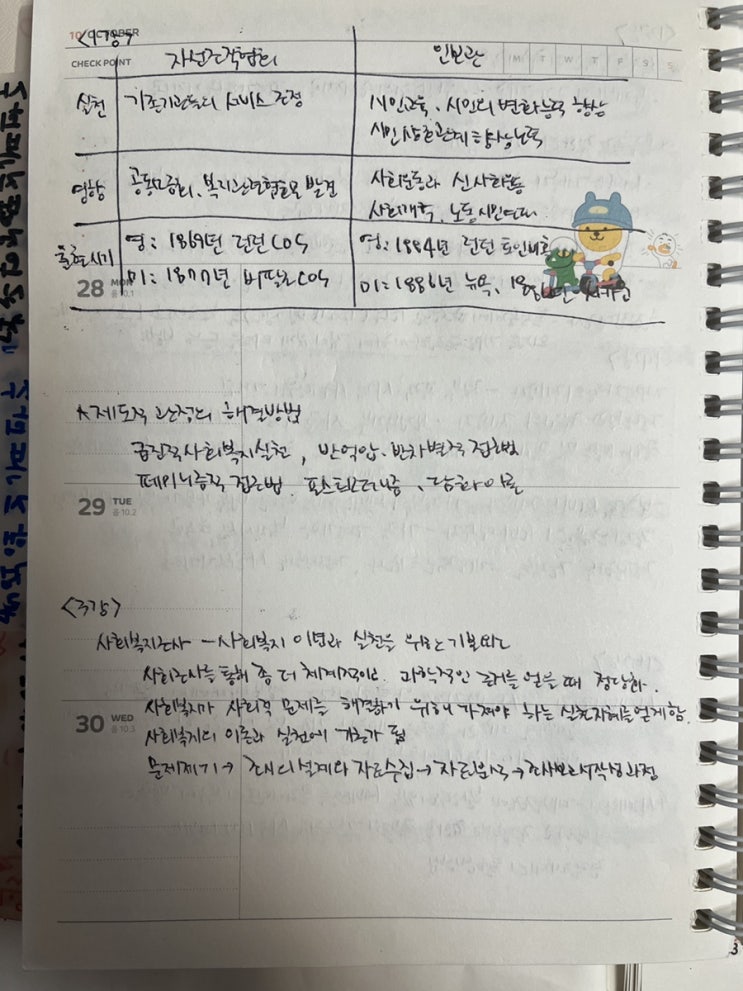 10 OCTOBER
CHECK POINT
M T W T F S S
자선조직협회 인보관
실천 기존기관들의 서비스 조정 시민교육, 시민의 변화능력 향상
시민상호관계 향상노력
영향 공동모금회, 복지관련협회로 발전 사회운동과 신사회운동
사회개혁, 노동시민연대
출현시기 영: 1869년 런던 COS 영: 1884년 런던 토인비홀
미: 1877년 버팔로 COS 미: 1886년 뉴욕,
28 MON
음 10.1
*제도적 관점의 해결방법
급진적사회복지실천, 반억압·반차별적 접근법
페미니즘적 접근법. 포스트모더니즘, 담화이론
29 TUE
음 10.2
<2강>
사회복지조사 - 사회복지 이념과 실천을 위한 기본요소
사회조사를 통해 좀 더 체계적이고 과학적인 근거를 얻을 때 정당화.
사회복지가 사회적 문제를 해결하기 위해 가져야 하는 실천지혜를 얻게함.
30 WED
음 10.3
사회복지의 이론과 실천에 기초가 됨
문제제기→ 조사설계와 자료수집→ 자료분석→조사보고서작성과정
3